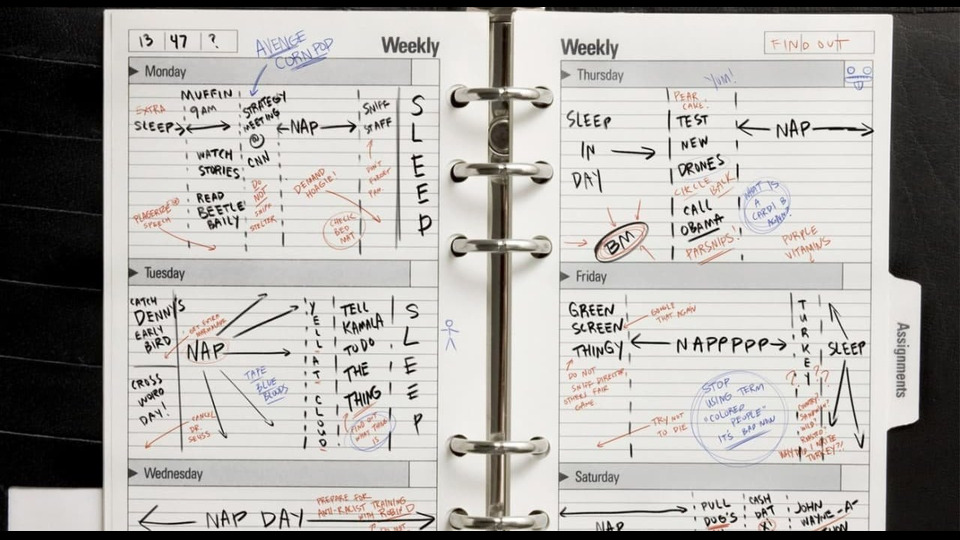 13 47 ?
AVENGE
CORNPOP
Weekly
Monday
EXTRA
SLEEP
MUFFIN
9AM
WATCH
STORIES
READ
BEETLE
BAILY
PLAGERIZE
SPEECH
STRATEGY
MEETING
@
CNN
DO
NOT
SNIFF
STELTER
NAP
DEMAND
HOAGIE!
CHECK
BED
MAT
SNIFF
STAFF
DON'T
FORGET
S
L
E
E
P
Tuesday
CATCH
DENNY'S
EARLY
BIRD
CROSS
WORD
DAY!
GET EXTRA
NAP
CANCEL
DR.
SEUSS
TAPE
BLUE
BLOODS
Y
E
L
L
A
T
C
L
O
U
D
TELL
KAMALA
TO DO
THE
THING
FIND OUT
WHAT THING
IS
S
L
E
E
P
Wednesday
NAP DAY
PREPARE FOR
ANTI-RACIST TRAINING
WITH ROBIN D
Weekly
FIND OUT
Thursday
YUM!
SLEEP
IN
DAY
BM
PEAR
CAKE!
TEST
NEW
DRONES
CIRCLE BACK
CALL
OBAMA
PARSNIPS!
NAP
WHAT IS
A
CARDI B
AGAIN?
PURPLE
VITAMINS
Friday
GREEN
SCREEN
THINGY
GOOGLE
THAT AGAIN
DO NOT
SNIFF DIRECTOR,
OTHERS FAIR
GAME
NAPPPPP
TRY NOT
TO DIE
STOP
USING TERM
"COLORED
PEOPLE"
IT'S BAD NOW
T
U
R
K
E
Y
? ? ?
COMBO?
SANDWICH?
WILD
ROASTED
WHY DID I WRITE
TURKEY?!
SLEEP
Saturday
NAP
PULL
DUG'S
CASH
DAT
JOHN
WAYNE-A-
Assignments